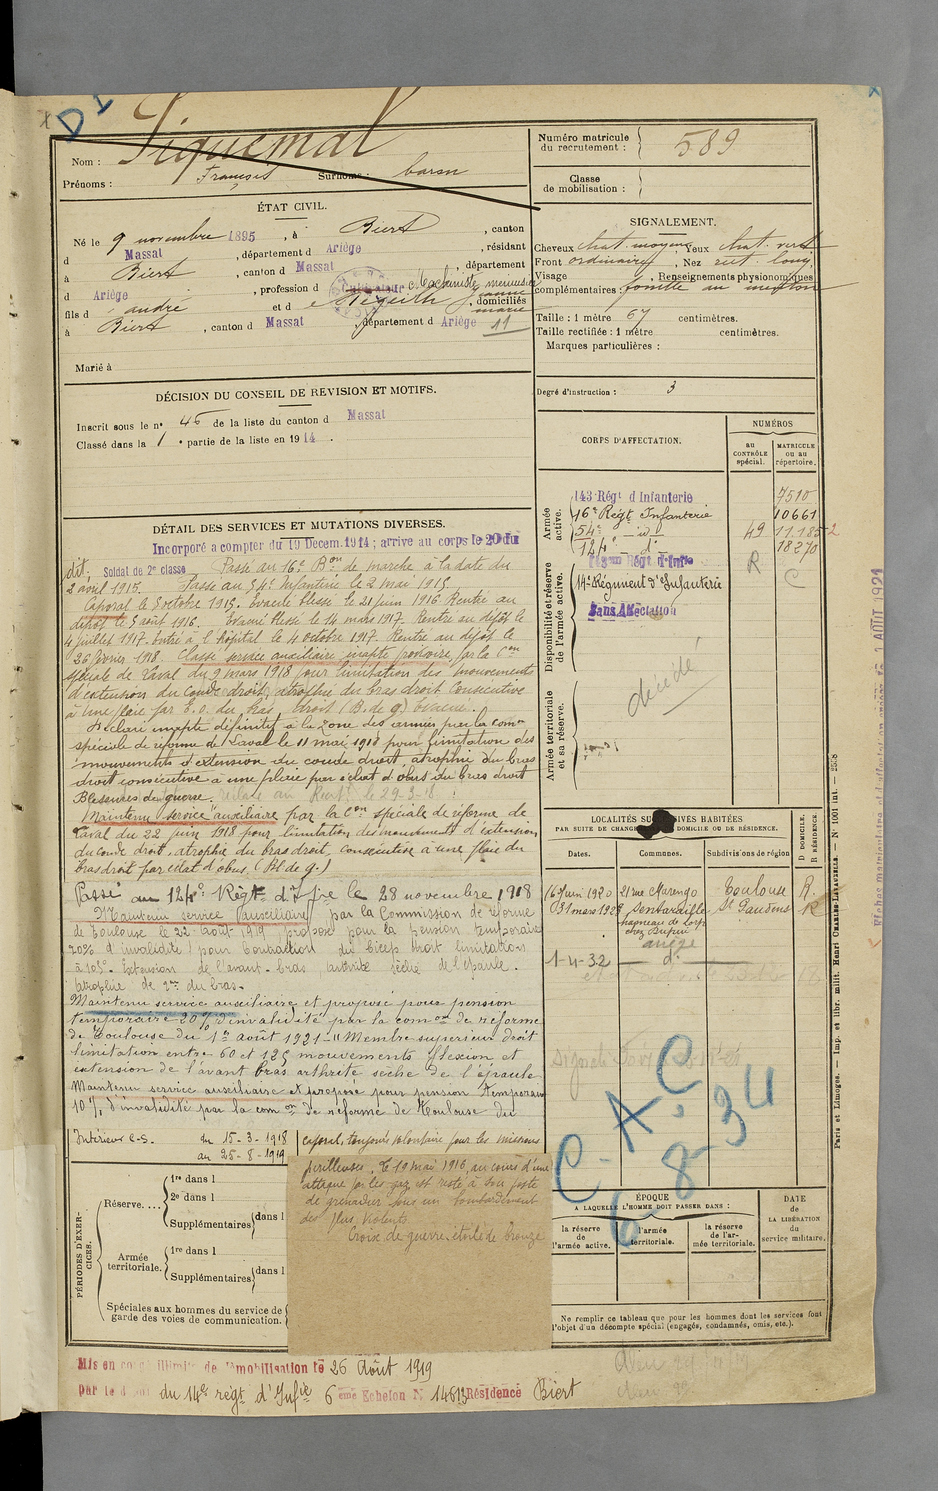 D 1
Nom : Piquemal
Prénoms : François Surnoms : baron
Numéro matricule
du recrutement : 589
Classe
de mobilisation :
ÉTAT CIVIL.
Né le 9 novembre 1895, à Biert, canton
d Massat, département d Ariège, résidant
à Biert, canton d Massat, département
d Ariège, profession d Cultivateur
fils d André et d domiciliés
à Biert, canton d Massat, département d Ariège
11
Marié à
SIGNALEMENT.
Cheveux chat. moyens Yeux chat. verts
Front ordinaire, Nez rect. long.
Visage , Renseignements physionomiques
complémentaires : fossette au menton
Taille : 1 mètre 67 centimètres.
Taille rectifiée : 1 mètre centimètres.
Marques particulières :
Degré d'instruction : 3
DÉCISION DU CONSEIL DE REVISION ET MOTIFS.
Inscrit sous le n° 46 de la liste du canton d Massat
Classé dans la 1 e partie de la liste en 1914.
DÉTAIL DES SERVICES ET MUTATIONS DIVERSES.
Incorporé a compter du 19 Decem. 1914 ; arrive au corps le 20 du
dit. Soldat de 2e classe Passé au 16e Bon de marche à la date du
2 avril 1915. Passé au 54e Infanterie le 2 mai 1915
Caporal le 5 octobre 1915. Évacué blessé le 21 juin 1916 Rentré au
dépôt le 5 août 1916. Évacué blessé le 14 mars 1917. Rentré au dépôt le
4 juillet 1917. Entré à l'hôpital le 4 octobre 1917. Rentré au dépôt le
26 février 1918. Classé service auxiliaire inapte provisoire par la Con
spéciale de Laval du 9 mars 1918 pour limitation des mouvements
d'extension du coude droit, atrophie du bras droit Consécutive
à une plaie par E. O. du bras droit (B. de g)
Déclaré inapte définitif à la zone des armées par la Comon
spéciale de réforme de Laval le 11 mai 1918 pour limitation des
mouvements d'extension du coude droit, atrophie du bras
droit consécutive à une plaie par éclat d'obus du bras droit
Blessures de guerre. le 29-3-18
Maintenu service auxiliaire par la Con spéciale de réforme de
Laval du 22 juin 1918 pour limitation des mouvements d'extension
du coude droit, atrophie du bras droit, consécutive à une plaie du
bras droit par éclat d'obus. (Bl. de g.)
Passé au 124e Régt d'Infie le 28 novembre 1918
Maintenu service auxiliaire par la Commission de réforme
de Toulouse le 22 août 1919, proposé pour la pension temporaire
20% d'invalidité pour Contraction du bicep droit limitation
à 105°. Extension de l'avant-bras, arthrite sèche de l'épaule.
Atrophie de 2cm du bras.
Maintenu service auxiliaire et proposé pour pension
temporaire 20% d'invalidité par la comon de réforme
de Toulouse du 1er août 1921 "Membre supérieur droit
limitation entre 60 et 125 mouvements flexion et
extension de l'avant bras arthrite sèche de l'épaule
Maintenu service auxiliaire et proposé pour pension temporaire
10% d'invalidité par la comon de réforme de Toulouse du
Intérieur C.S. du 15-3-1918
au 25-8-1919
caporal, toujours volontaire pour les missions
périlleuses. Le 19 mai 1916, au cours d'une
attaque par les gaz est resté à son poste
de grenadier sous un bombardement
des plus violents
Croix de guerre, étoile de bronze
CORPS D'AFFECTATION.
NUMÉROS
au CONTRÔLE spécial.
MATRICULE ou au répertoire.
Armée active.
143 Régt d Infanterie 7510
16e Régt Infanterie 10661
54e — id 49 11.185
124e — d° 18270
R C
Disponibilité et réserve de l'armée active.
14e Régiment d'Infanterie
Sans Affectation
Armée territoriale et sa réserve.
décédé
LOCALITÉS SUCCESSIVES HABITÉES
PAR SUITE DE CHANGEMENT DE DOMICILE OU DE RÉSIDENCE.
Dates. Communes. Subdivisions de région
D DOMICILE.
R RÉSIDENCE.
16 Juin 1920 21 rue Marengo Toulouse R.
31 mars 1928 Sentaraille St Gaudens R
Ariège
1-4-32 — d° —
C.A.C
6-8-34
PÉRIODES D'EXERCICES.
Réserve....
1re dans l
2e dans l
Supplémentaires dans l
Armée territoriale.
1re dans l
Supplémentaires dans l
Spéciales aux hommes du service de
garde des voies de communication.
ÉPOQUE
A LAQUELLE L'HOMME DOIT PASSER DANS :
la réserve de l'armée active.
l'armée territoriale.
la réserve de l'armée territoriale.
DATE de LA LIBÉRATION du service militaire.
Ne remplir ce tableau que pour les hommes dont les services font
l'objet d'un décompte spécial (engagés, condamnés, omis, etc.).
Mis en congé illimité de démobilisation le 26 Août 1919
par le dépôt du 14e régt d'Infie 6eme Echelon N° 14613 Résidence Biert
Paris et Limoges. — Imp. et libr. milit. Henri CHARLES-LAVAUZELLE. — N° 1001 int. — 2558